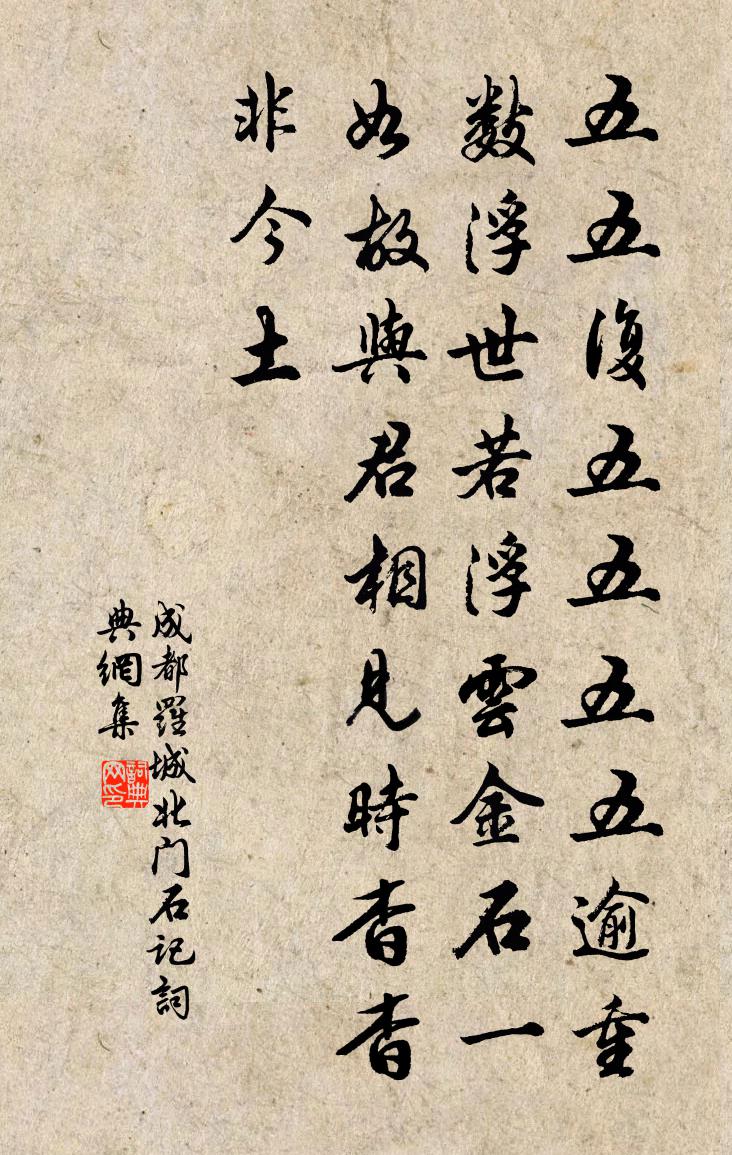 五五復五五五五逾重
數浮世若浮雲金石一
如故與君相見時杳杳
非今土
成都羅城北门石记詞
典網集
詞典
网印